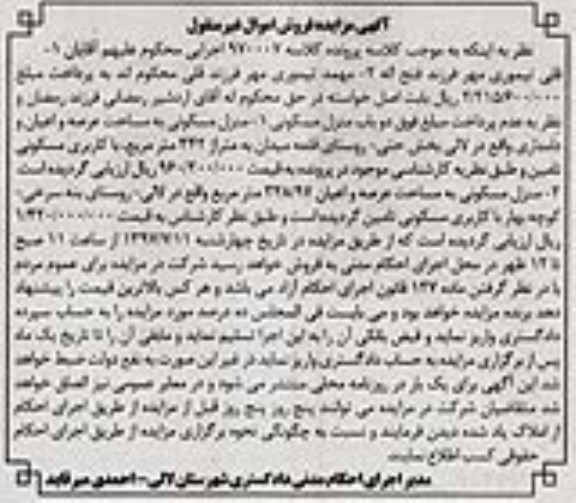 آگهی مزایده فروش اموال غیر منقول
نظر به اینکه به موجب کلاسه پرونده کلاسه ۹۷۰۰۰۷ اجرایی محکوم علیهم آقایان ۱-
قلی تیموری مهر فرزند فتح اله ۲- مهمد تیموری مهر فرزند قلی محکوم اند به پرداخت مبلغ
ریال بابت اصل خواسته در حق محکوم له آقای اردشیر رمضانی فرزند رمضان و
نظر به عدم پرداخت مبلغ فوق دو باب منزل مسکونی ۱- منزل مسکونی به مساحت عرصه و اعیان و
دامداری واقع در لالی بخش حتی- روستای قلعه میدان به متراژ ۳۴۲ متر مربع، با کاربری مسکونی
تامین و طبق نظریه کارشناسی موجود در پرونده به قیمت ۹۶۰/۲۰۰/۰۰۰ ریال ارزیابی گردیده است
۲- منزل مسکونی به مساحت عرصه و اعیان ۳۲۸/۹۵ متر مربع واقع در لالی- روستای بنه سرخی-
کوچه بهار با کاربری مسکونی تامین گردیده است و طبق نظر کارشناس به قیمت
ریال ارزیابی گردیده است که از طریق مزایده در تاریخ چهارشنبه ۱۳۹۷/۷/۱۱ از ساعت ۱۱ صبح
تا ۱۲ ظهر در محل اجرای احکام مدنی به فروش خواهد رسید شرکت در مزایده برای عموم مردم
با در نظر گرفتن ماده ۱۳۷ قانون اجرای احکام آزاد می باشد و هر کس بالاترین قیمت را پیشنهاد
دهد برنده مزایده خواهد بود و می بایست فی المجلس ده درصد مورد مزایده را به حساب سپرده
دادگستری واریز نماید و قبض بانکی آن را به این اجرا تسلیم نماید و مابقی آن را تا تاریخ یک ماه
پس از برگزاری مزایده به حساب دادگستری واریز نماید در غیر این صورت به نفع دولت ضبط خواهد
شد این آگهی برای یک بار در روزنامه محلی منتشر می شود و در معابر عمومی نیز الصاق خواهد
شد متقاضیان شرکت در مزایده می توانند پنج روز پنج روز قبل از مزایده از طریق اجرای احکام
از املاک یاد شده دیدن فرمایند و نسبت به چگونگی نحوه برگزاری مزایده از طریق اجرای احکام
حقوقی کسب اطلاع نمایند
مدیر اجرای احکام مدنی دادگستری شهرستان لالی- احمدی میرقاید